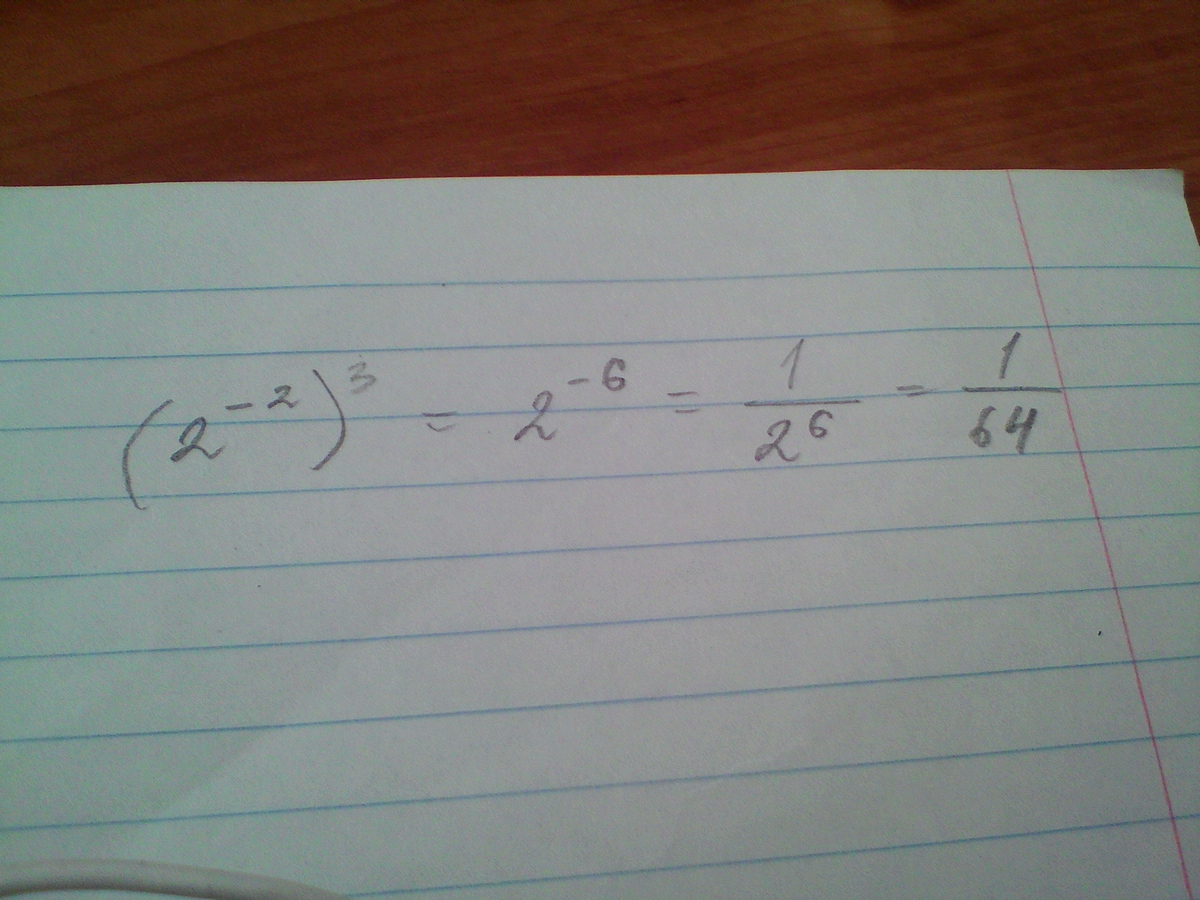 (2^{-2})^3 = 2^{-6} = \frac{1}{2^6} = \frac{1}{64}